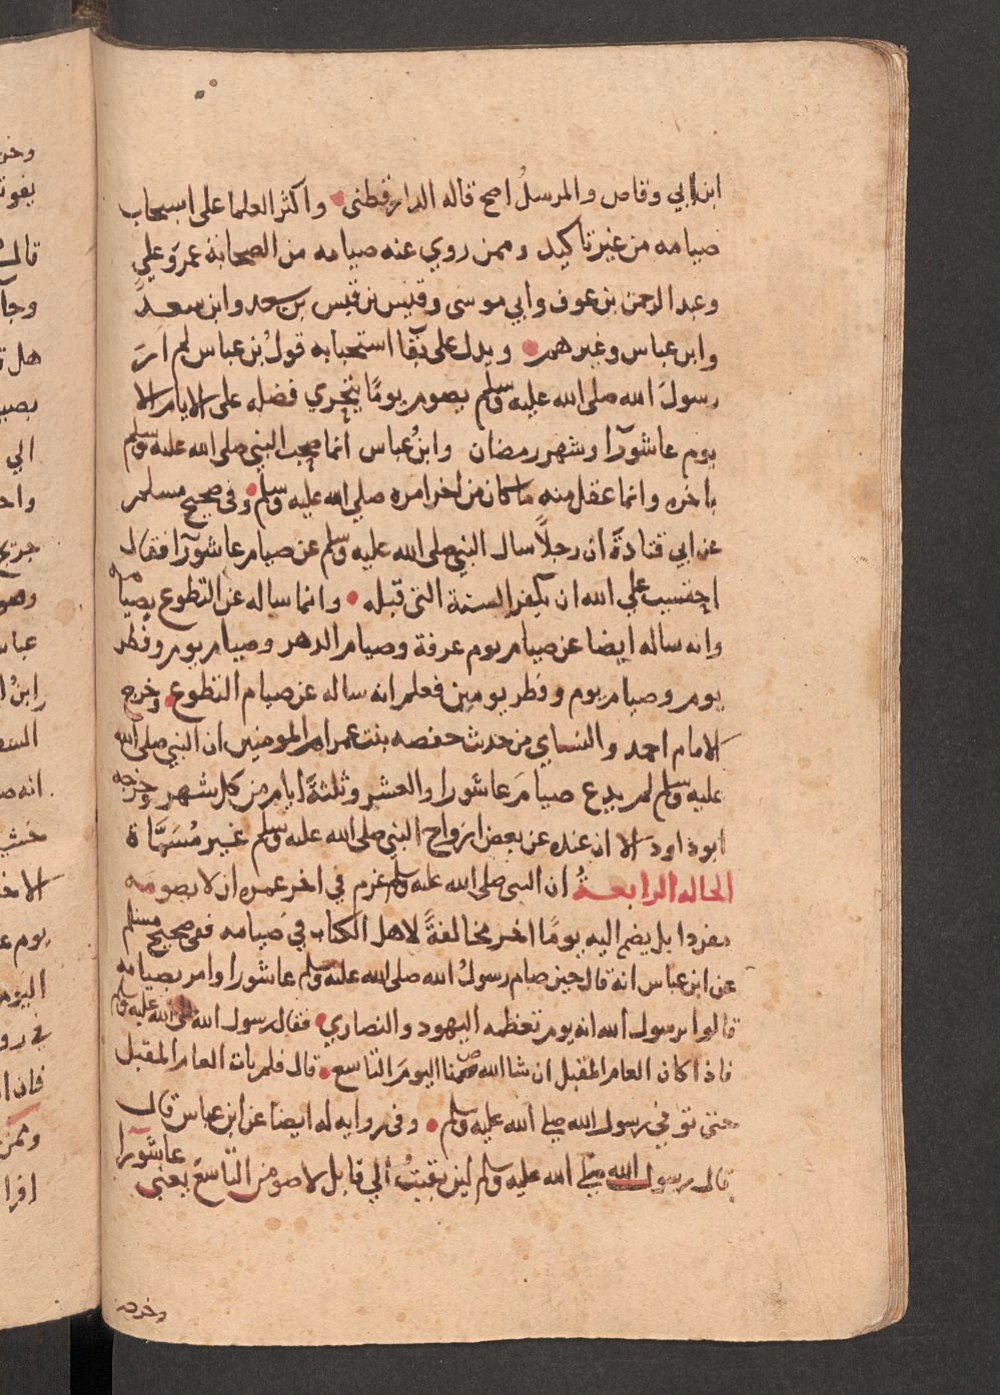 ابن ابي وقاص والمرسلُ اصح قاله الدارقطنى • واكثر العلما على استحباب
صيامه من غير تاكيد وممن روي عنه صيامه من الصحابة عمر وعلي
وعبد الرحمن بن عوف وابي موسى وقيس بن سعد وابن مسعود
وابن عباس وغيرهم • ويدل على بقآ استحبابه قولُ بن عباس لم ارَ
رسولَ الله صلى الله عليه وسلم يصوم يومًا يتحري فضله على الايام الا
يوم عاشورآ وشهر رمضان وابنُ عباس انما صحب النبي صلى الله عليه وسلم
باخره وانما عقل منه ما كان من اخر امره صلي الله عليه وسلم • وفى صحيح مسلم
عن ابي قتادةَ ان رجلًا سال النبي صلى الله عليه وسلم عن صيام عاشورآ فقال
احتسب علي الله ان يكفر السنة التى قبله • وانما ساله عن التطوع بصيامه
وانه ساله ايضا عن صيام يوم عرفة وصيام الدهر وصيام يوم وفطر
يوم وصيام يوم وفطر يومين فعلم انه ساله عن صيام التطوع • وخرج
الامام احمد والنساي من حديث حفصه بنت عمر ام المومنين ان النبي صلى الله
عليه وسلم لم يدع صيامَ عاشورا والعشر وثلثةَ ايام من كل شهر وخرجه
ابوداود الا ان عنده عن بعض ازواج النبي صلى الله عليه وسلم غير مُسَمَّاة
الحاله الرابعةُ ان النبى صلى الله عليه وسلم عزم في اخر عمره ان لا يصومه
مفردا بل يضم اليه يومًا اخر مخالفةً لاهل الكتاب في صيامه ففى صحيح مسلم
عن ابن عباس انه قال حين صام رسولُ الله صلى الله عليه وسلم عاشورا وامر بصيامه
قالوا يرسول الله انه يوم تعظمه اليهود والنصاري • فقال رسول الله صلى الله عليه وسلم
فاذا كان العام المقبل ان شا الله صمنا اليومَ التاسع • قال فلم يات العام المقبل
حتى توفي رسول الله صلى الله عليه وسلم • وفى روايه له ايضا عن ابن عباس قال
قال رسول الله صلى الله عليه وسلم لين بقيتُ الي قابل لاصومن التاسعَ يعنى عاشورا
وخرجه